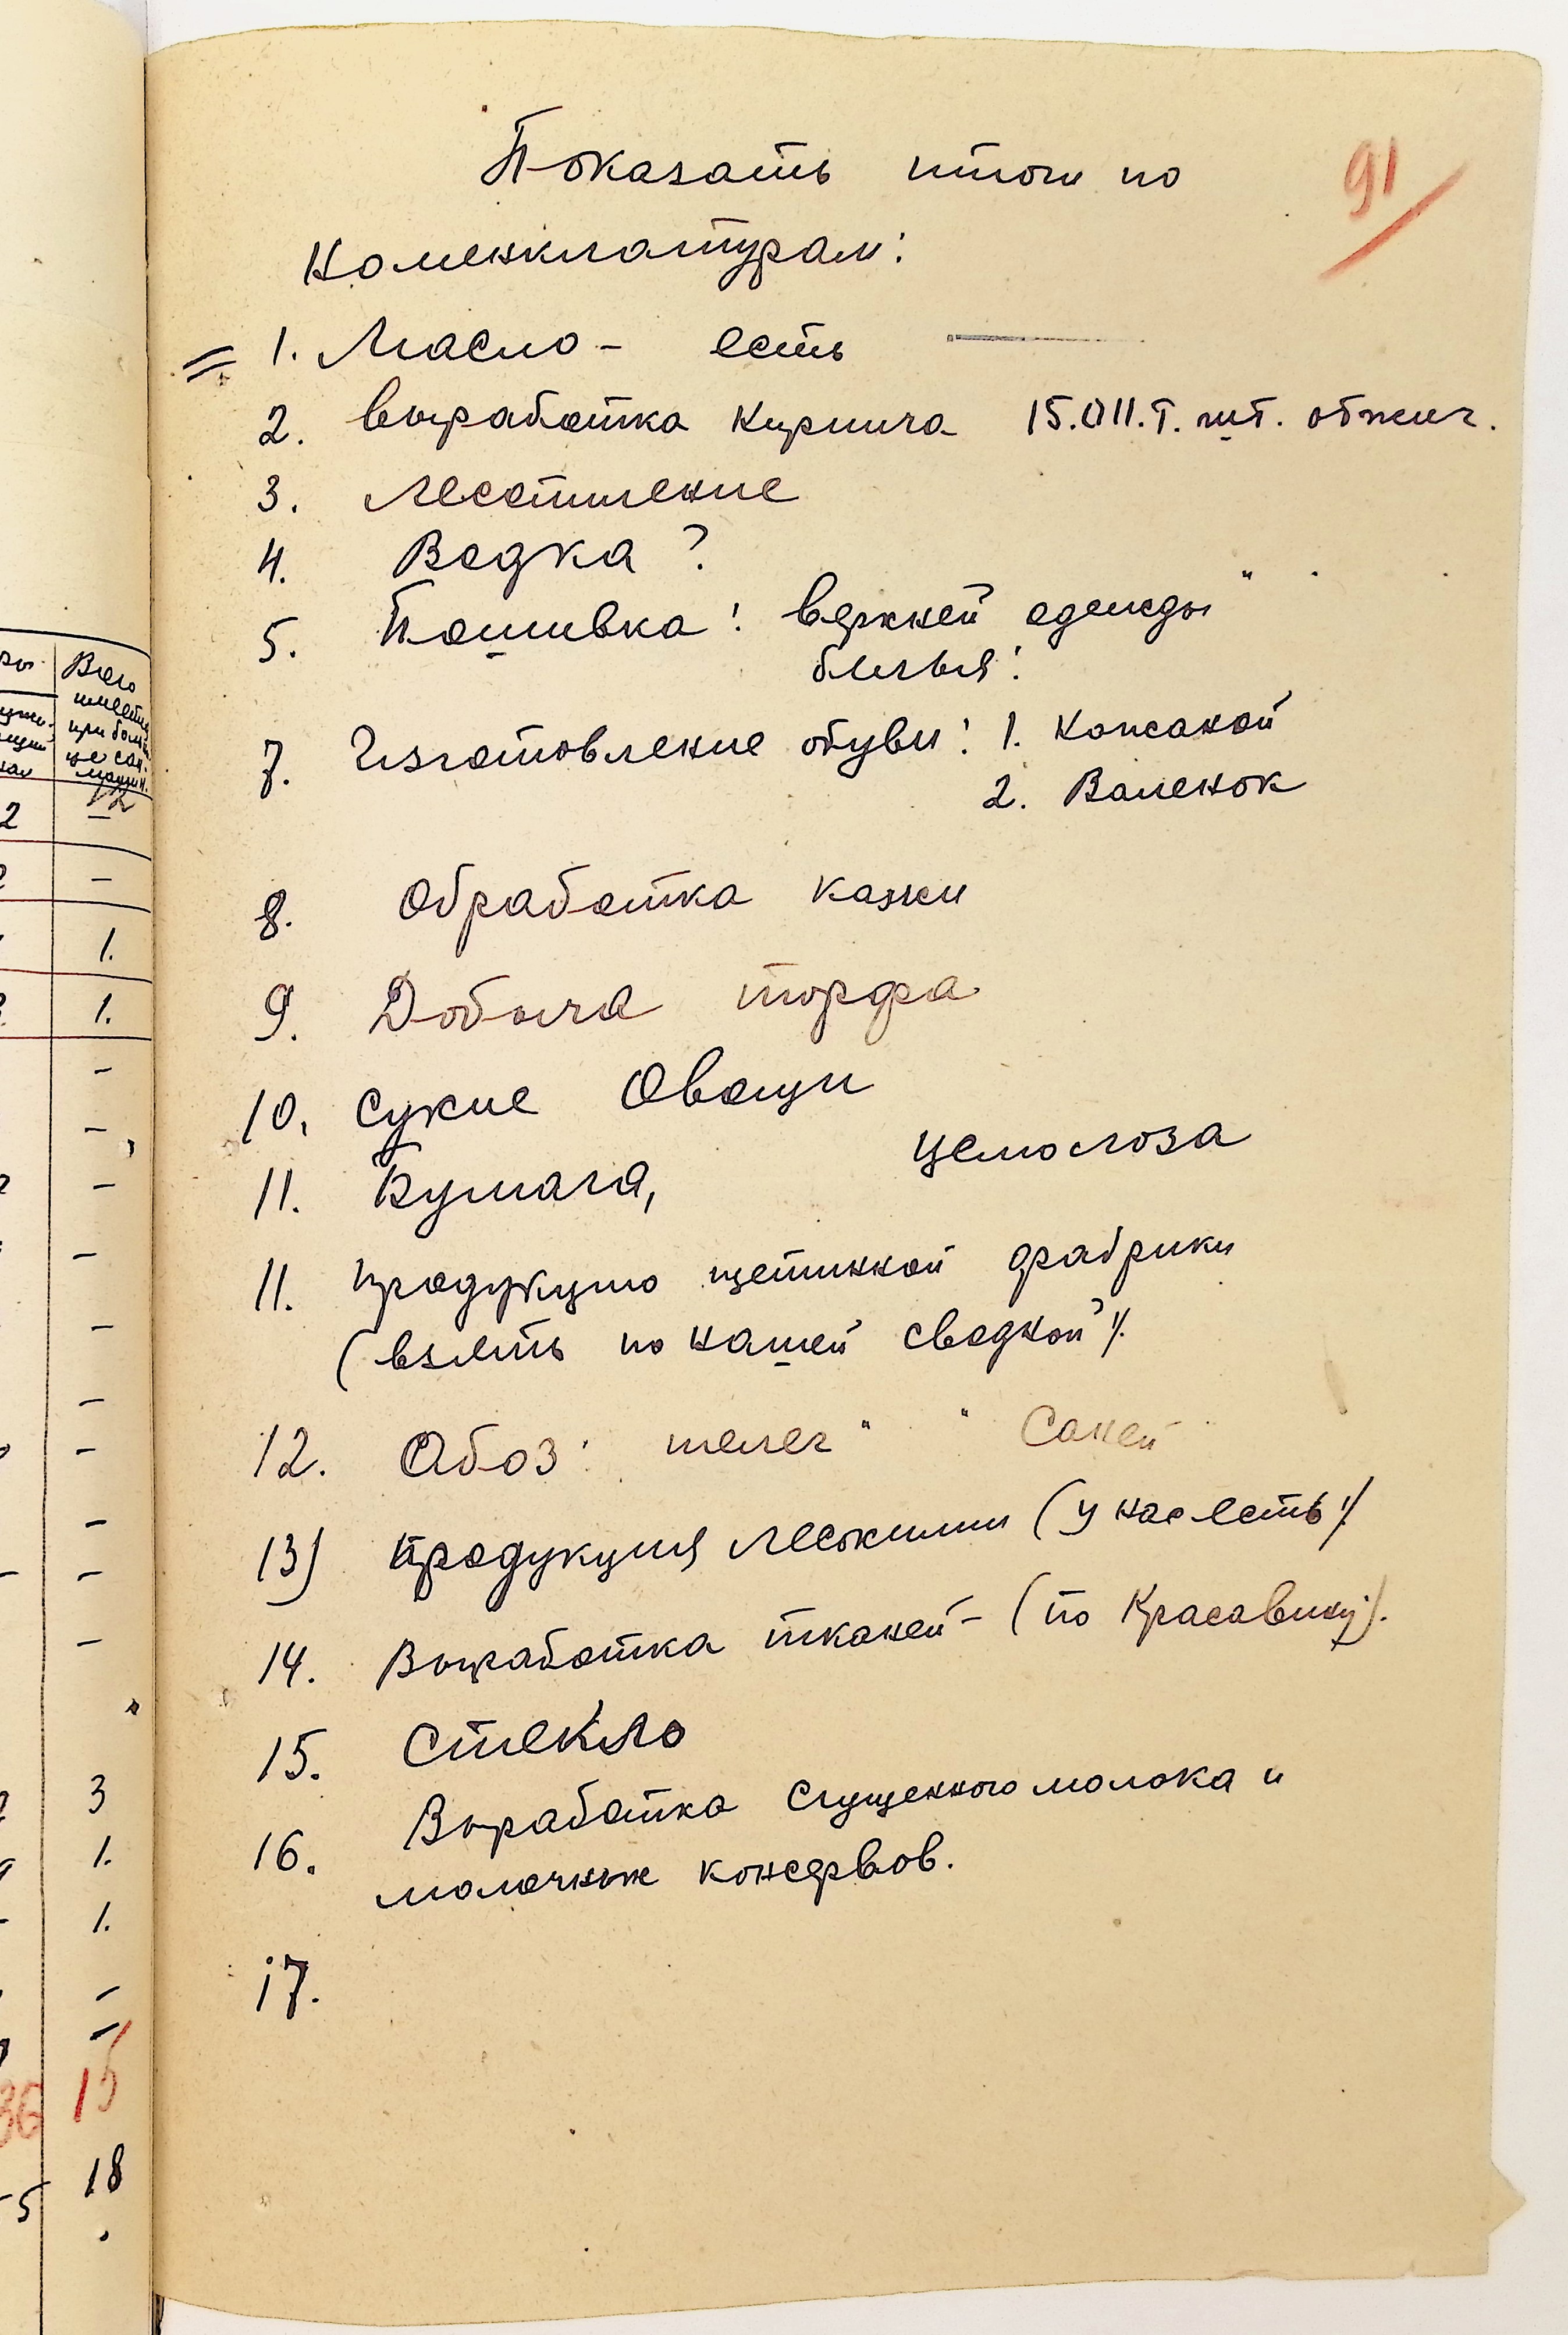 91
Показать итоги по
номенклатурам:
1. Масло - есть
2. Выработка кирпича 15.011.т. шт. обжиг.
3. Лесопиление
4. Водка ?
5. Пошивка: верхней одежды "
белья:
7. Изготовление обуви: 1. Кожаной
2. Валенок
8. Обработка кожи
9. Добыча торфа
10. Сухие Овощи
11. Бумага, целюлоза
11. Продукцию щетинной фабрики
(взять по нашей сводкой).
12. Обоз: телег " " Саней
13) Продукция лесохимии (у нас есть).
14. Выработка тканей - (по Красавину).
15. Стекло
16. Выработка сгущенного молока и
молочных консервов.
17.
Всего
2 -
-
1.
1.
-
-
-
-
-
-
-
-
-
-
3
1.
1.
-
-
36 15
5 18